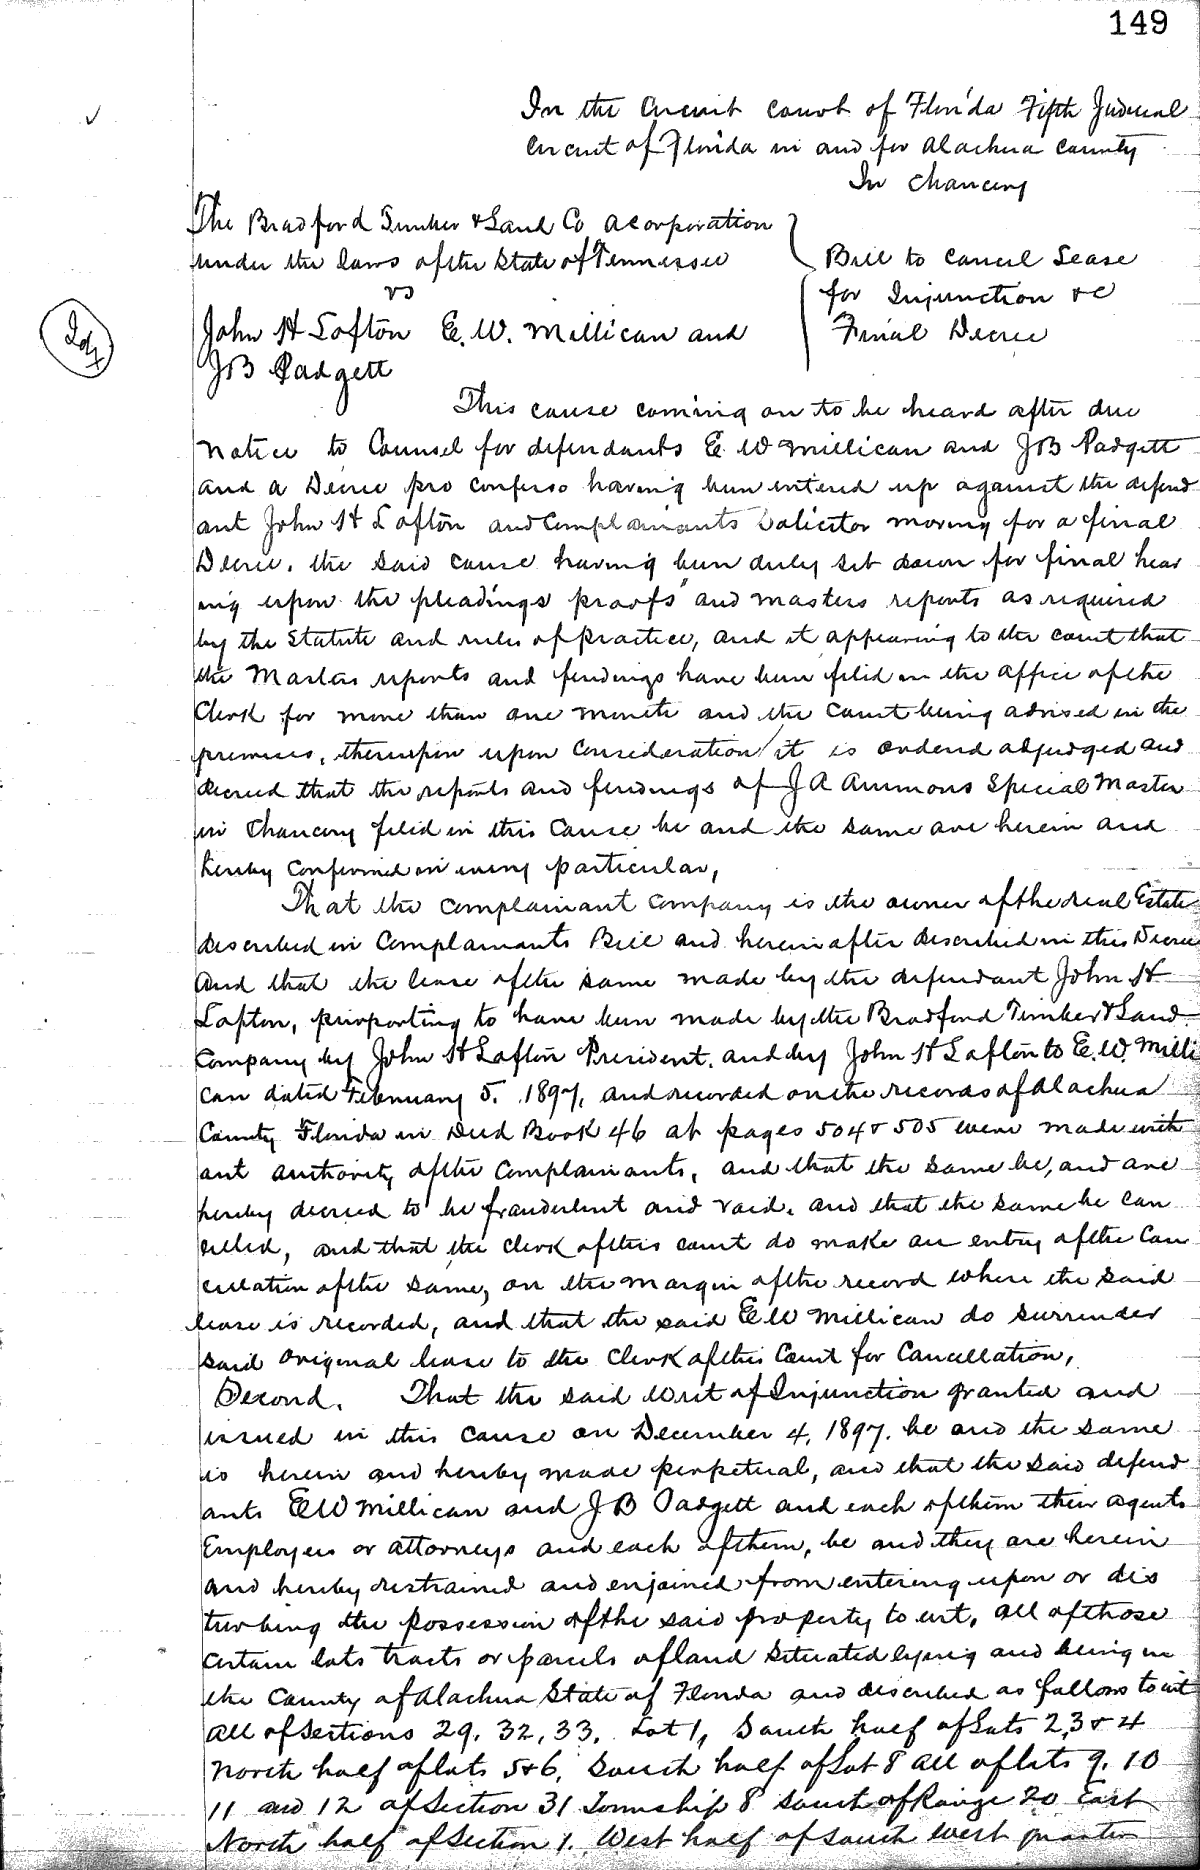 149
In the Circuit Court of Florida Fifth Judicial
Circuit of Florida in and for Alachua County
In Chancery
The Bradford Timber & Land Co a corporation
under the laws of the State of Tennessee
vs
John H Lofton E. W. Millican and
J B Padgett
Bill to Cancel Lease
for Injunction &c
Final Decree
Idx
This cause coming on to be heard after due
notice to Counsel for defendants E. W Millican and J B Padgett
and a Decree pro confesso having been entered up against the defend
ant John H Lofton and Complainants Solicitor moving for a final
Decree. the said cause having been duly set down for final hear
ing upon the pleadings proofs and masters reports as required
by the Statute and rules of practice, and it appearing to the court that
the Masters reports and findings have been filed in the office of the
Clerk for more than one month and the Court being advised in the
premises, thereupon upon consideration it is ordered adjudged and
decreed that the reports and findings of J A Ammons Special Master
in Chancery filed in this Cause be and the same are herein and
hereby confirmed in every particular,
That the Complainant Company is the owner of the real Estate
described in Complainants Bill and herein after described in this Decree
and that the lease of the same made by the defendant John H
Lofton, purporting to have been made by the Bradford Timber & Land
Company by John H Lofton President. and by John H Lofton to E. W. Milli
can dated February 5. 1897, and recorded on the records of Alachua
County Florida in Deed Book 46 at pages 504 & 505 were made with
out authority of the Complainants, and that the same be, and are
hereby decreed to be fraudulent and void. and that the same be can
celled, and that the Clerk of this court do make an entry of the Can
cellation of the same, on the margin of the record where the said
lease is recorded, and that the said E W Millican do surrender
said original lease to the Clerk of this Court for Cancellation,
Second. That the said Writ of Injunction granted and
issued in this cause on December 4, 1897. be and the same
is herein and hereby made perpetual, and that the said defend
ants E W Millican and J B Padgett and each of them their agents
Employees or attorneys and each of them, be and they are herein
and hereby restrained and enjoined from entering upon or dis
turbing the possession of the said property to wit, all of those
certain lots tracts or parcels of land situated lying and being in
the County of Alachua State of Florida and described as follows to wit
all of Sections 29, 32, 33, Lot 1, South half of Lots 2, 3 & 4
North half of lots 5 & 6, South half of Lot 8 all of lots 9, 10
11 and 12 of Section 31 Township 8 South of Range 20 East
North half of Section 1. West half of South West quarter